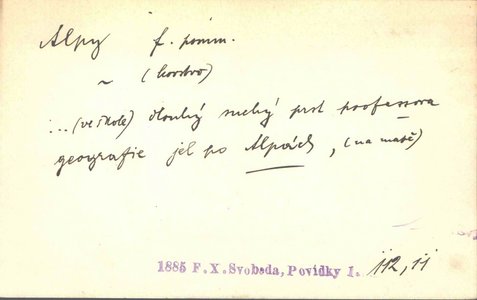 Alpy f. pomn.
~ (horstvo)
... (ve škole) dlouhý suchý prst professora
geografie jel po Alpách, (na mapě)
1885 F. X. Svoboda, Povídky I. 112, 11